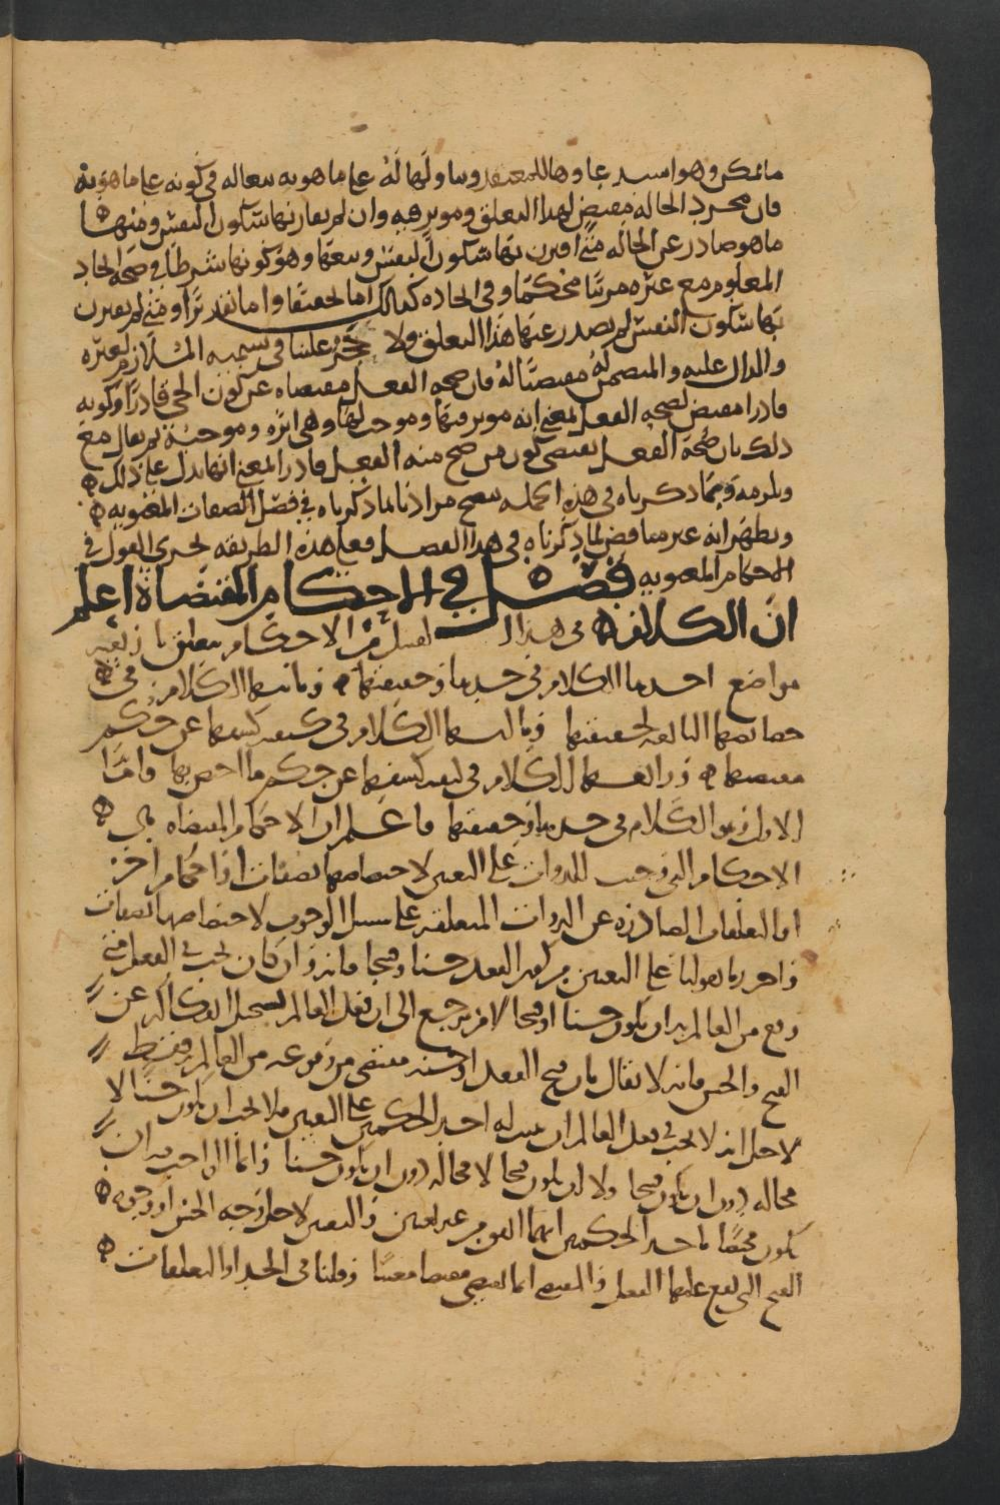 ما يمكن وهو اسد علما وها للمعتقد وساولها له على ما هو به سعاله في كونه على ما هو به
فان مجرد الحاله مقتض لهذا التعلق وموثر فيه وان لم يقارنها سكون النفس ومنها
ما هو صادر عن الحاله متى اقترن بها سكون النفس وسعها وهو كونها شرطا في صحة ايجاد
المعلوم مع غيره مرتبا محكما وفي ايجاده كذلك اما تحقيقا واما تقديرا ومتى لم يقترن
بها سكون النفس لم يصدر عنها هذا التعلق ولا حجر علينا في تسميه الملازم لغيره
والدال عليه والمتضمن له مقتضيا له فان صحه الفعل مقتضاه عن كون الحي قادرا وكونه
قادرا مقتض لصحه الفعل بمعنى انه موثر فيها وموجب لها وهي اثره وموجبه ثم يقال مع
ذلك بان صحة الفعل تقتضي كون من صح منه الفعل قادرا بمعنى انها تدل على ذلك
وتلزمه وبما ذكرناه في هذه الجمله يتضح مرادنا بما ذكرناه في فصل الصفات المعنويه
ويظهر انه غير مناقض لما ذكرناه في هذا الفصل فعلى هذه الطريقه يجري القول في
الاحكام المعنويه فصل في الاحكام المقتضاة اعلم
ان الكلام في هذا القبيل من الاحكام يتعلق باربعه
مواضع احدها الكلام في حدها وحقيقتها وثانيها الكلام في
خصائصها التابعه لحقيقتها وثالثها الكلام في كيفيه كشفها عن حكم
مقتضيها ورابعها الكلام في كيفيه كشفها عن حكم ما اختص بها واما
الاول وهو الكلام في حدها وحقيقتها فاعلم ان الاحكام المقتضاه هي
الاحكام التي تجب للذوات على التعيين لاختصاصها بصفات او احكام اخر
او التعلقات الصادره عن الذوات المتعلقه على سبيل الوجوب لاختصاصها بصفات
واحترزنا بقولنا على التعيين من كون الفعل حسنا وقبيحا فانه وان كان يجب في الفعل متى
وقع من العالم به ان يكون حسنا او قبيحا لامر يرجع الى ان فعل العالم يستحيل انفكاكه عن
القبح والحسن فانه لا يقال بان قبح الفعل او حسنه مقتضى من وقوعه من العالم به فقط
لاجل انه لا يجب في فعل العالم ان يثبت له احد الحكمين على التعيين فلا يجب ان يكون حسنا لا
محاله دون ان يكون قبيحا ولا ان يكون قبيحا لا محاله دون ان يكون حسنا وانما الواجب فيه ان
يكون مختصا باحد الحكمين ايهما كان من غير تعيين والتعيين لاجل وجه الحسن او وجه
القبح التي يقع عليها الفعل والمقتضي انما يقتضي مقتضا معينا وقلنا في الحد او التعلقات